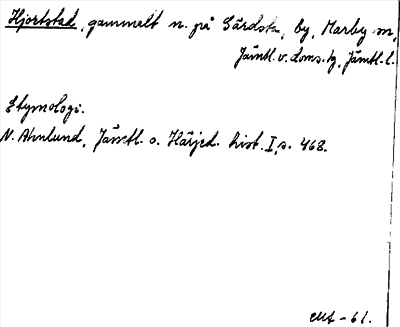 Hjortstad, gammalt n. på Gärdsta, by, Marby sn,
Jämtl. v. doms. tg, Jämtl. l.
Etymologi.
N. Ahnlund, Jämtl. o. Härjed. hist. I, s. 468.
-61.